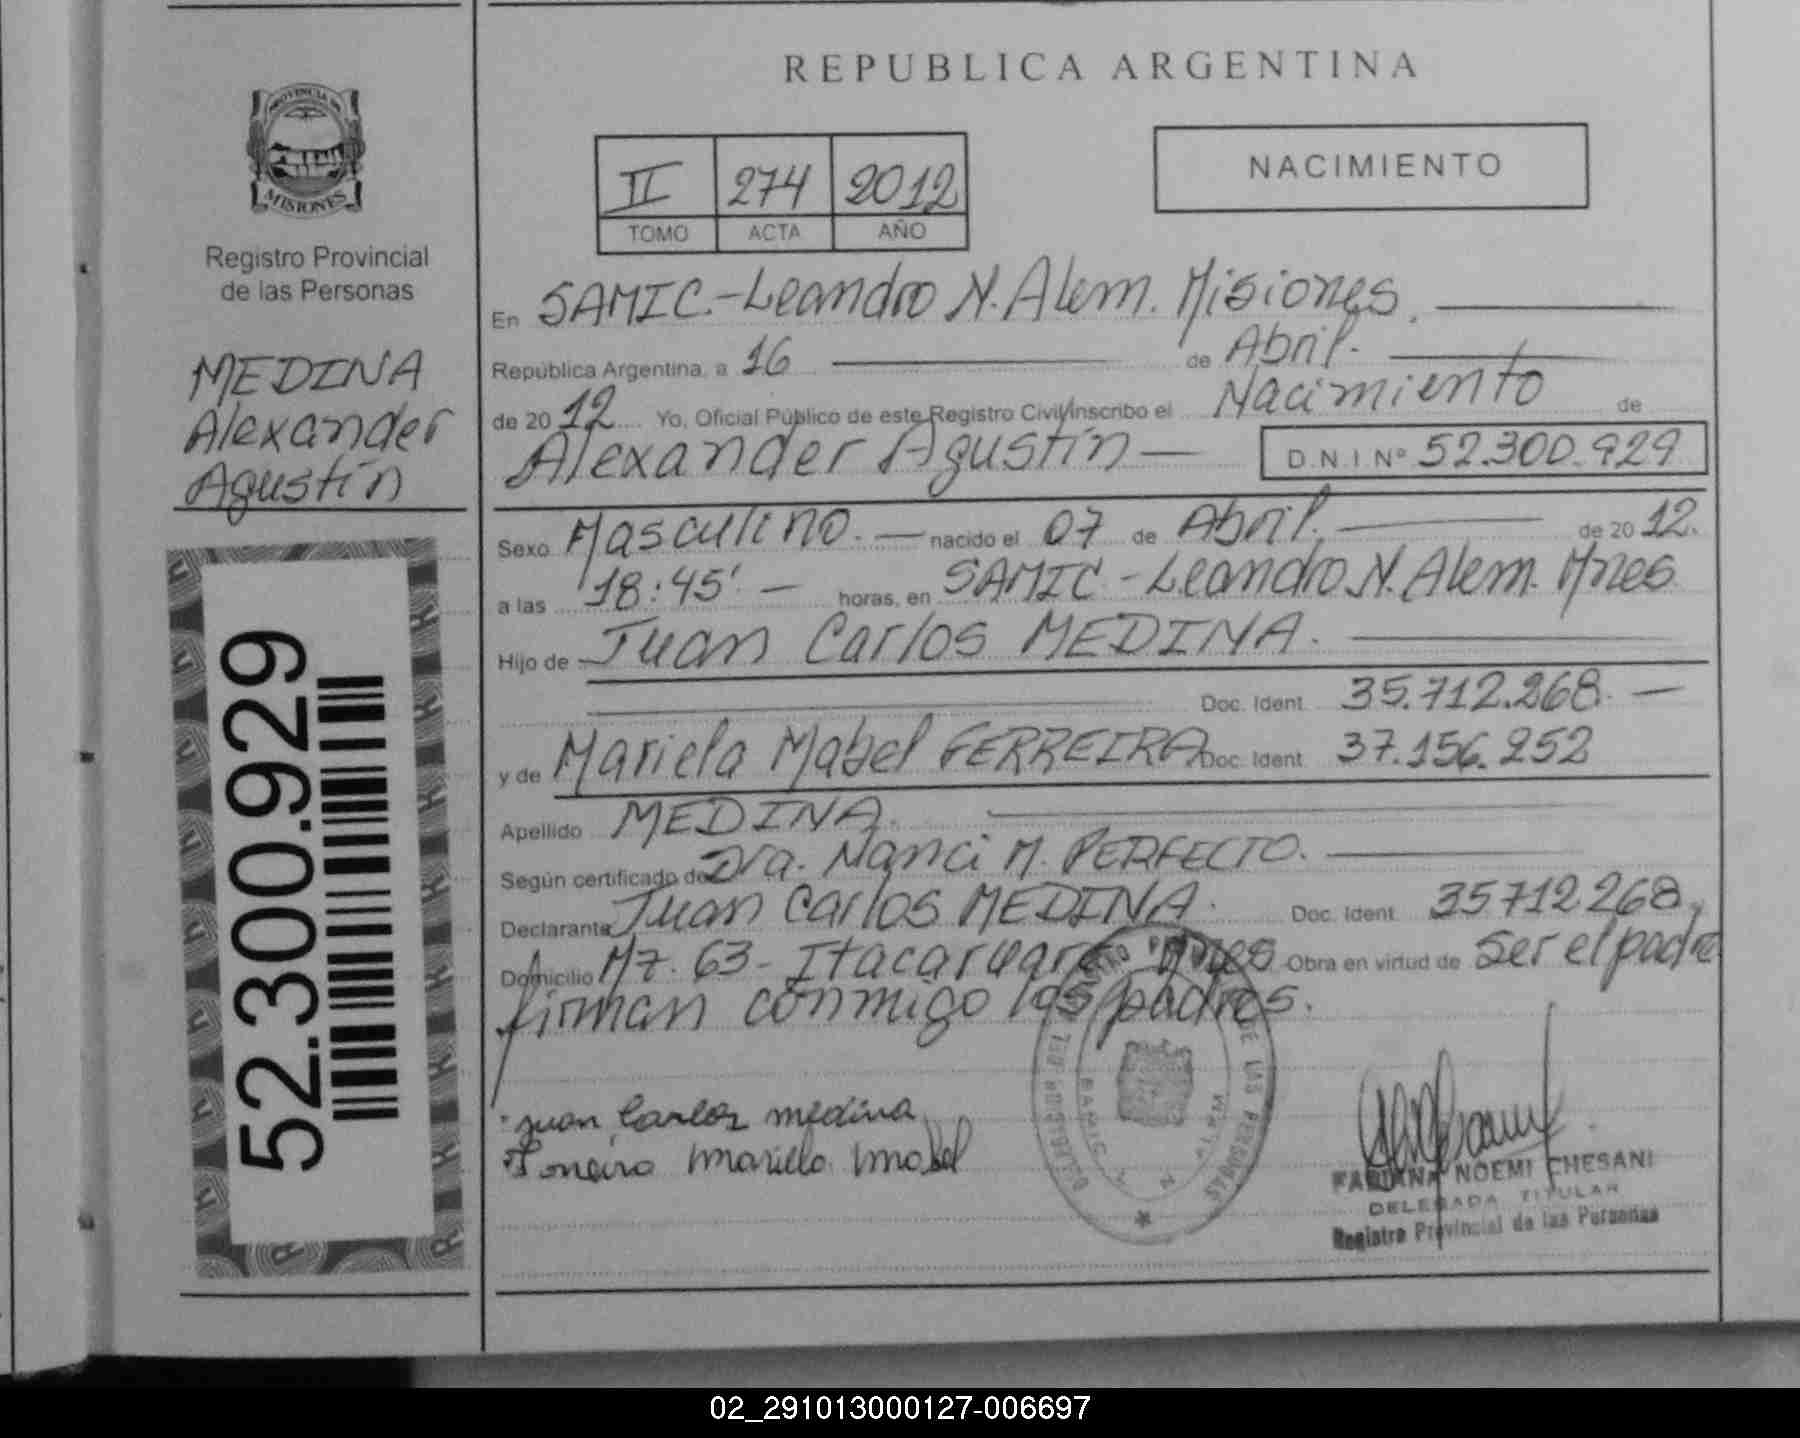 REPUBLICA ARGENTINA
PROVINCIA DE
MISIONES
Registro Provincial
de las Personas
MEDINA
Alexander
Agustín
52.300.929
II 274 2012
TOMO ACTA AÑO
NACIMIENTO
En SAMIC.-Leandro N. Alem. Misiones.
República Argentina, a 16 de Abril.
de 2012 Yo, Oficial Público de este Registro Civil, inscribo el Nacimiento de
Alexander Agustín — D.N.I. Nº 52.300.929
Sexo Masculino. — nacido el 07 de Abril. de 2012.
a las 18:45' — horas, en SAMIC - Leandro N. Alem. Mnes
Hijo de Juan Carlos MEDINA.
Doc. Ident. 35.712.268. —
y de Mariela Mabel FERREIRA Doc. Ident. 37.156.252
Apellido MEDINA.
Según certificado de Dra. Nanci M. PERFECTO.
Declarante Juan Carlos MEDINA. Doc. Ident. 35.712.268,
Domicilio Mz. 63 - Itacaruaré Mnes Obra en virtud de Ser el padre
firman conmigo los padres.
Juan Carlos medina
DE LAS PERSONAS
SAMIC
FABIANA NOEMI CHESANI
DELEGADA TITULAR
Registro Provincial de las Personas
02_291013000127-006697